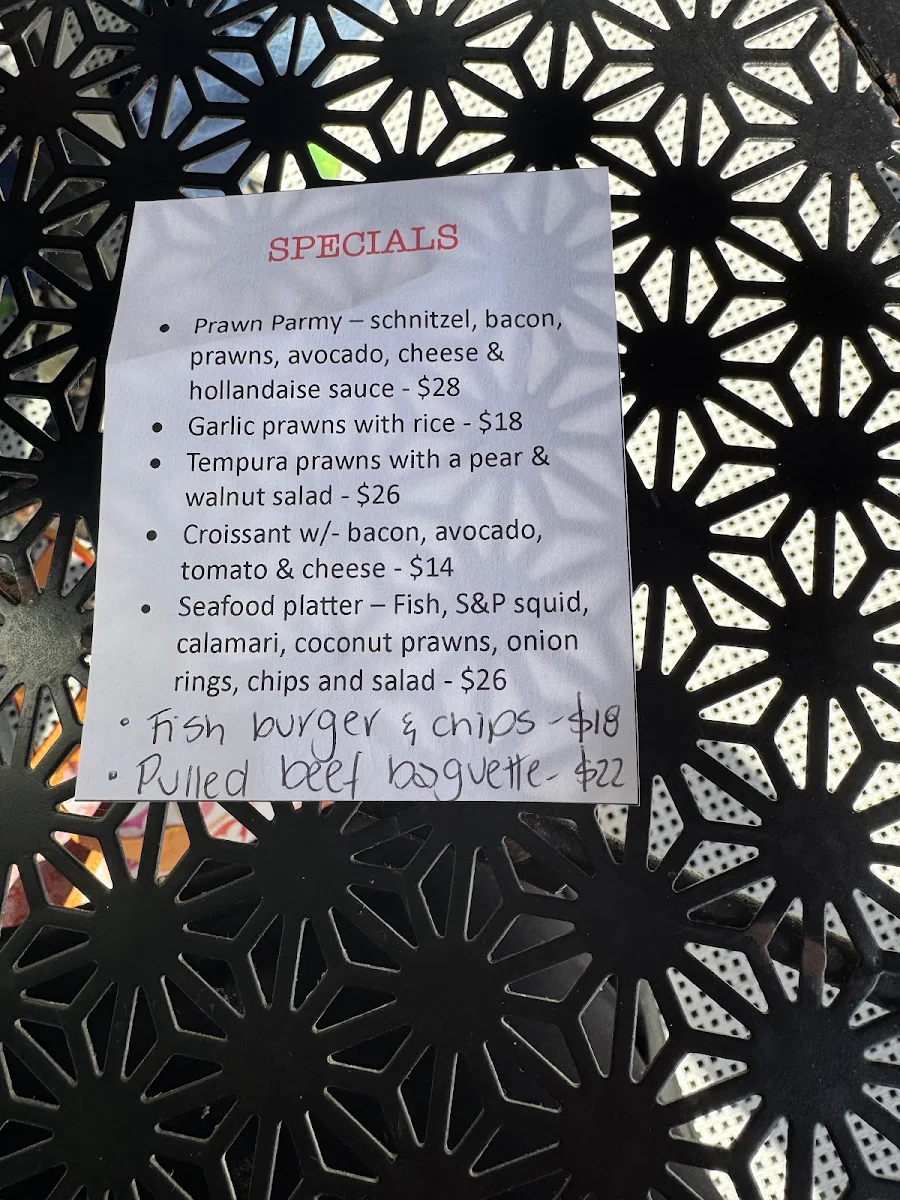 SPECIALS
• Prawn Parmy – schnitzel, bacon,
prawns, avocado, cheese &
hollandaise sauce - $28
• Garlic prawns with rice - $18
• Tempura prawns with a pear &
walnut salad - $26
• Croissant w/- bacon, avocado,
tomato & cheese - $14
• Seafood platter – Fish, S&P squid,
calamari, coconut prawns, onion
rings, chips and salad - $26
• Fish burger & chips - $18
• Pulled beef baguette - $22